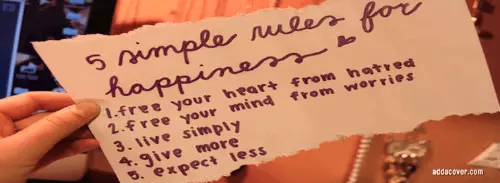 5 simple rules for
happiness
1. free your heart from hatred
2. free your mind from worries
3. live simply
4. give more
5. expect less
addacover.com